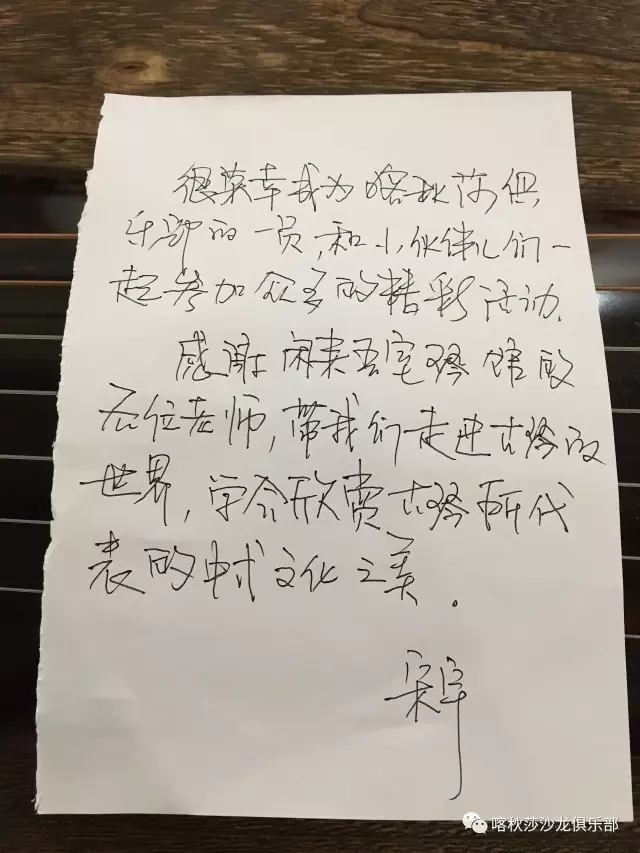 很荣幸成为喀秋莎俱
乐部的一员,和小伙伴儿们一
起参加众多的精彩活动.
感谢闲来吾室琴馆的
各位老师,带我们走进古琴的
世界,学会欣赏古琴所代
表的中式文化之美.
宋军
喀秋莎沙龙俱乐部